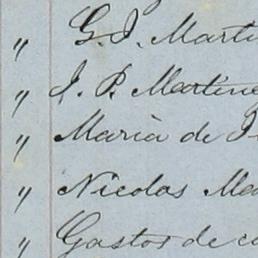 " G. J. Marti
" J. P. Martine
" Maria de J
" Nicolas Ma
" Gastos de c